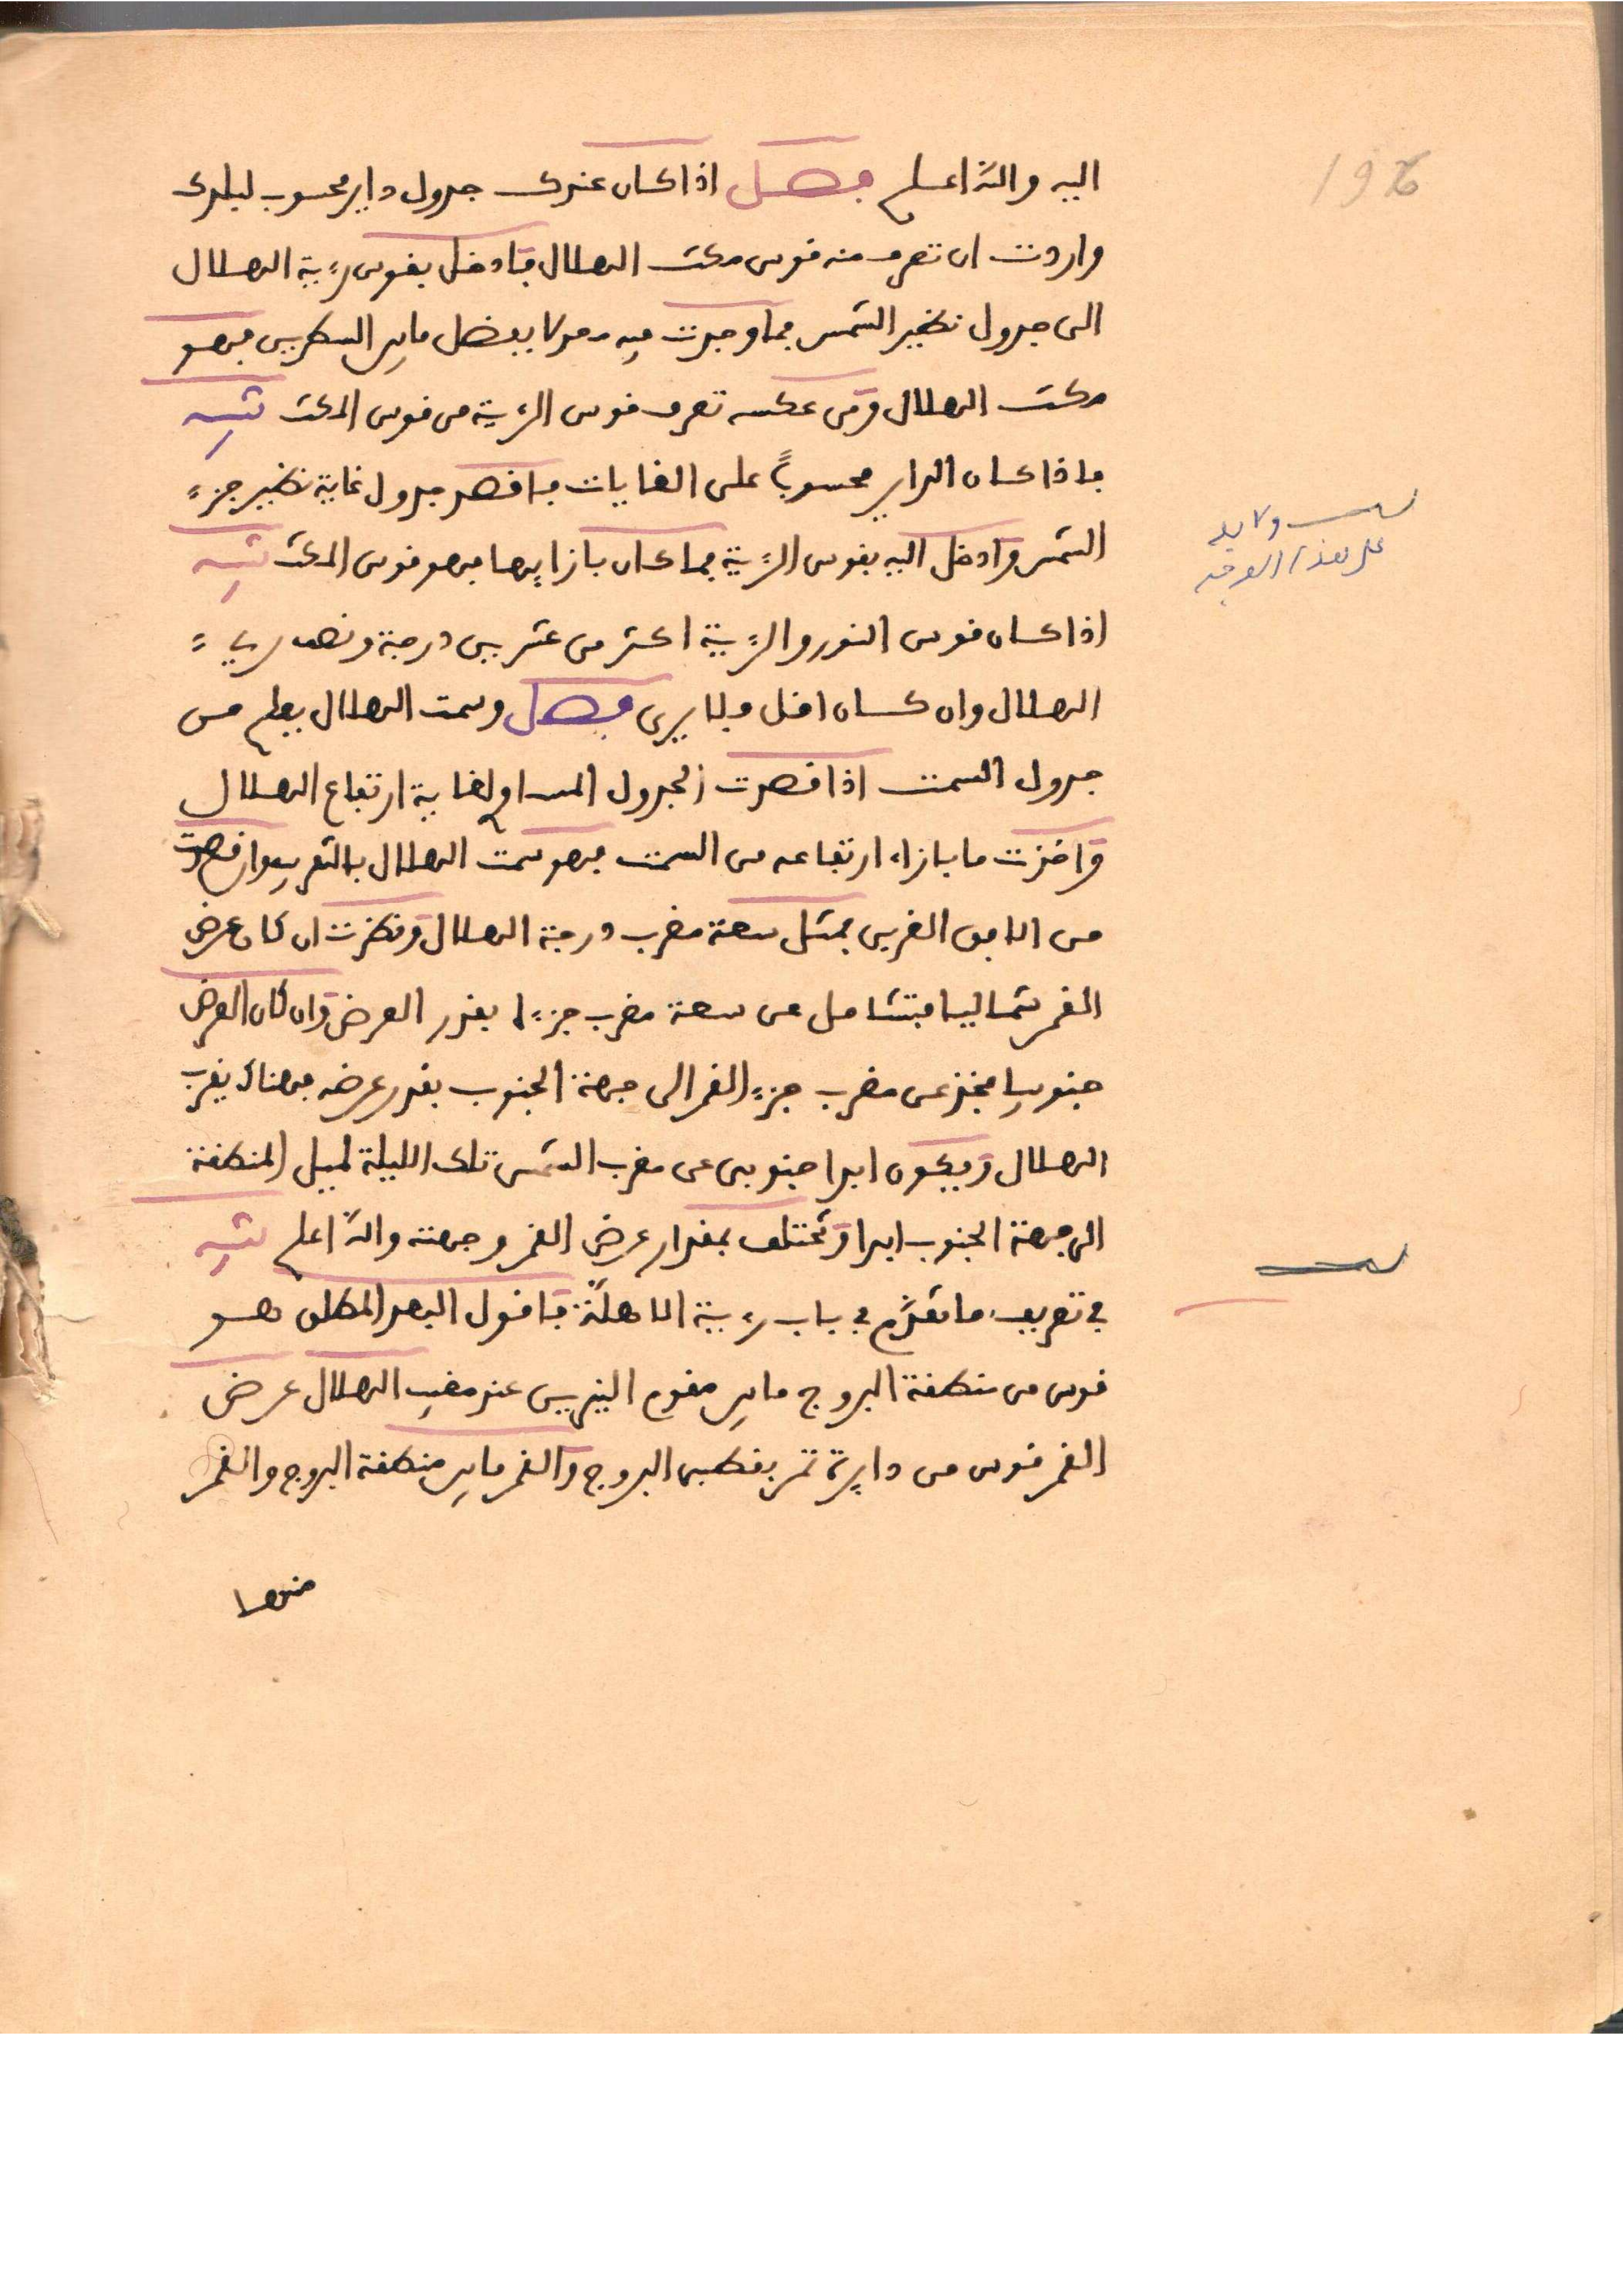 196
اليه والله اعلم فصل اذا كان عندك جدول داير محسوب لبلدك
واردت ان تعرف منه قوس مكث الهلال فادخل بقوس رءية الهلال
الى جدول نظير الشمس فما وجدت فيه بعد ما يفضل ما بين السطرين فهو
مكث الهلال ومن عكسه تعرف قوس الرءية من قوس المكث تنبيه
فاذا كان الداير محسوباً على الغايات فاقصد جدول غاية نظير جزء
الشمس وادخل اليه بقوس الرءية فما كان بازايها فهو قوس المكث تنبيه
ولا بد
على هذا الوجه
اذا كان قوس النور والرءية اكثر من عشرين درجة ونصف ريء
الهلال وان كان اقل فلا يرى فصل وسمت الهلال يعلم من
جدول السمت اذا قصدت الجدول المساو لغاية ارتفاع الهلال
واخذت ما بازاء ارتفاعه من السمت فهو سمت الهلال بالتقريب وان قصدت
من الافق الغربي بمثل سعة مغرب درجة الهلال ونظرت ان كان عرض
القمر شماليا فتشامل عن سعة مغرب جزءه بقدر العرض وان كان العرض
جنوبيا فخذ عن مغرب جزء القمر الى جهة الجنوب بقدر عرضه فهناك يغرب
الهلال ويكون ابدا جنوبي عن مغرب الشمس تلك الليلة لميل المنطقة
الى جهة الجنوب ابدا وتختلف بمقدار عرض القمر وجهته والله اعلم تنبيه
في تعريف ما تقدّم في باب رءية الاهلّة فاقول البعد المطلق هو
قوس من منطقة البروج ما بين مقوم النيرين عند مغيب الهلال عرض
القمر قوس من دايرة تمر بقطبى البروج والقمر ما بين منطقة البروج والقمر
منها